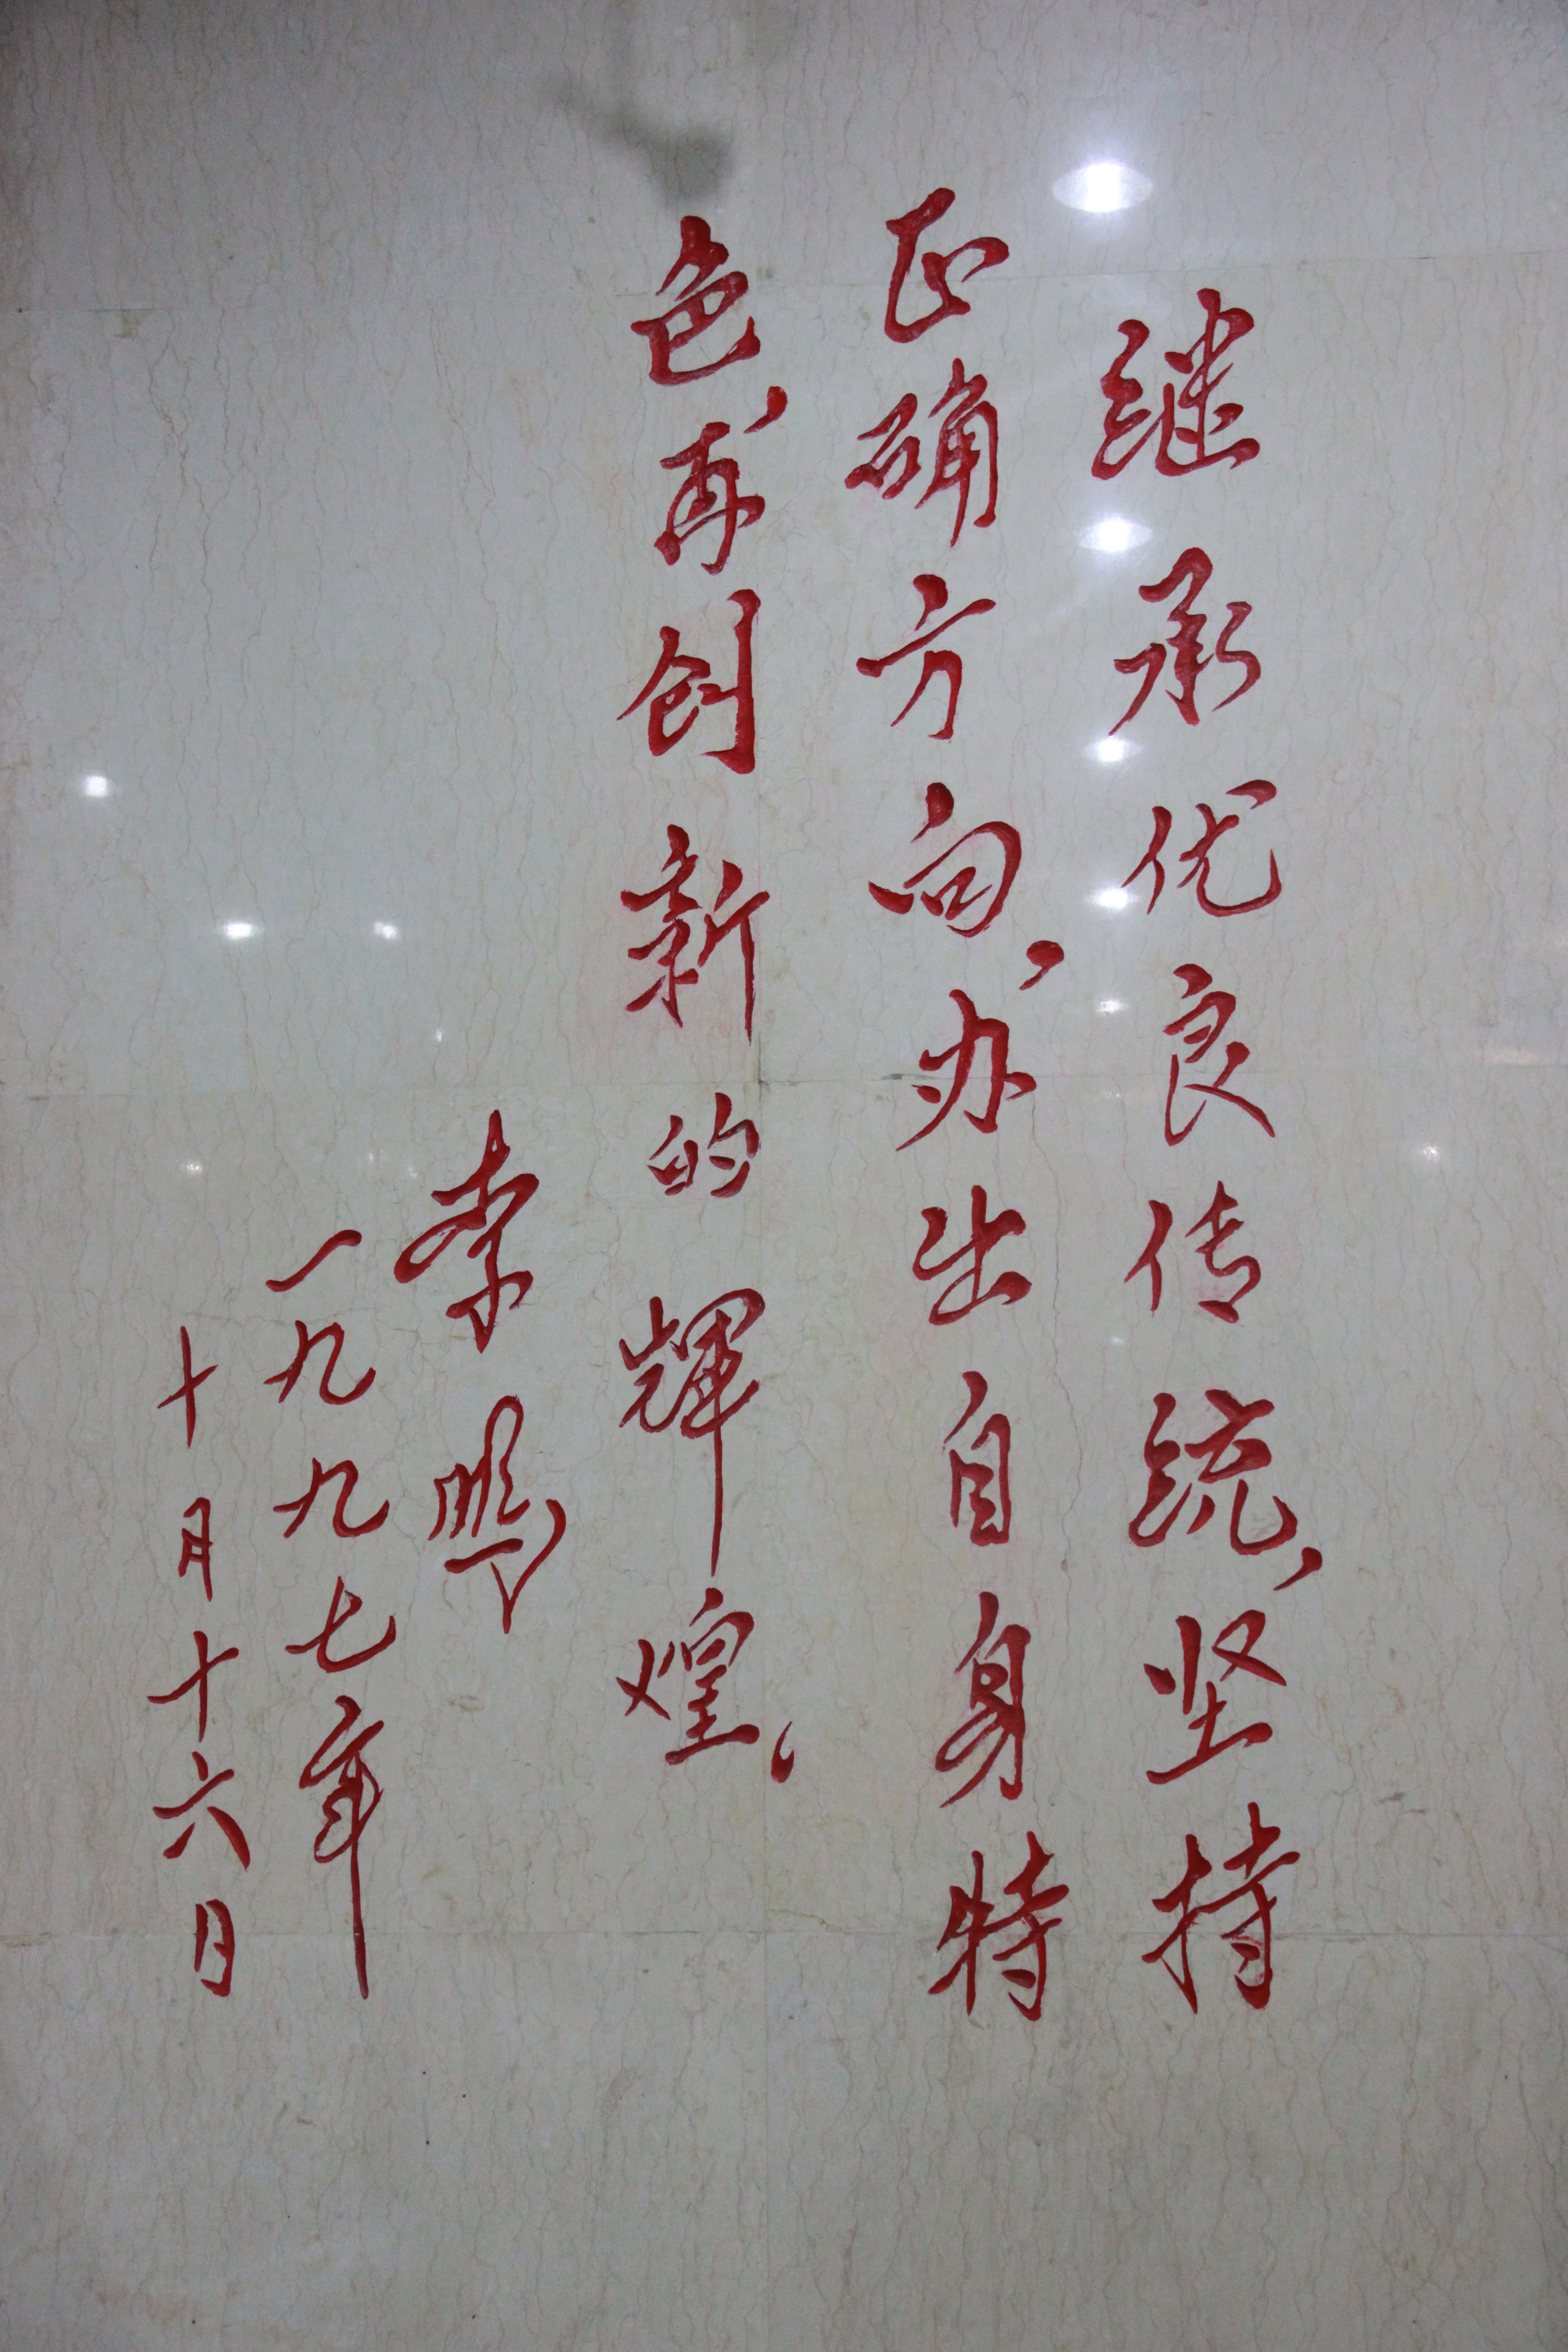 继承优良传统，坚持
正确方向，办出自身特
色，再创新的辉煌。
李鹏
一九九七年
十月十六日